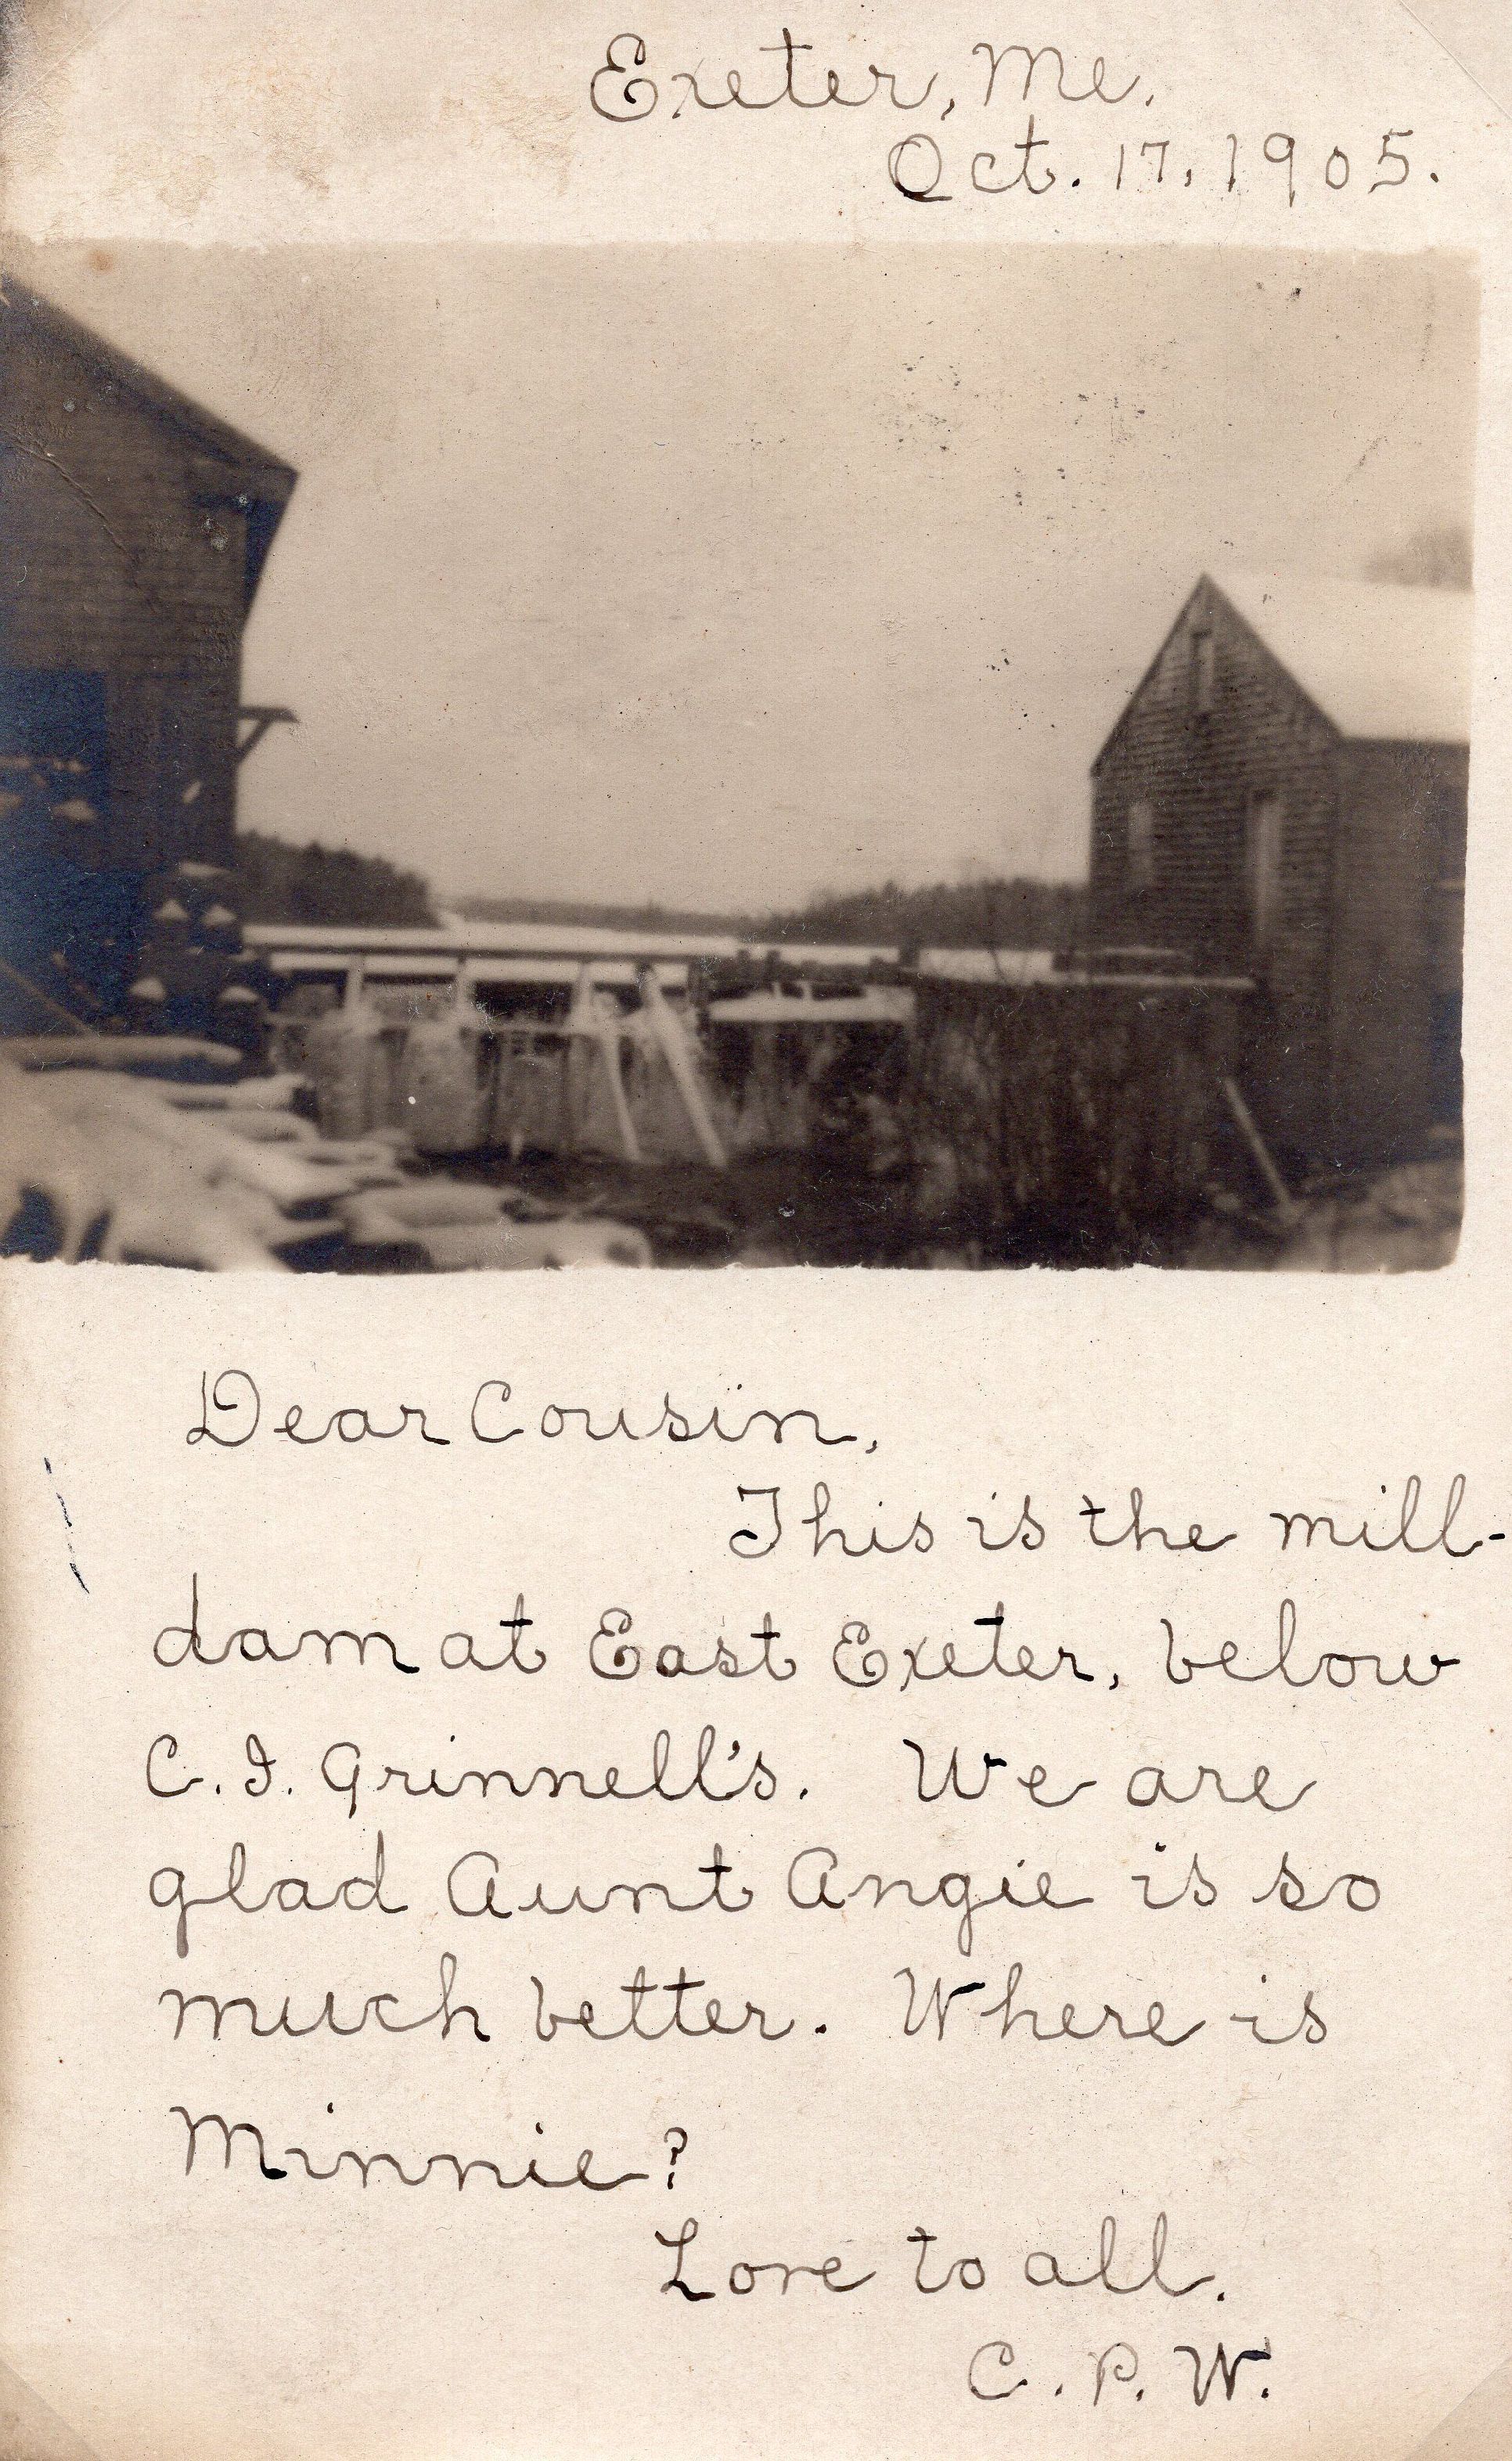 Exeter, Me.
Oct. 17, 1905.
Dear Cousin,
This is the mill-
dam at East Exeter, below
C. I. Grinnell's. We are
glad Aunt Angie is so
much better. Where is
Minnie?
Love to all.
C. P. W.